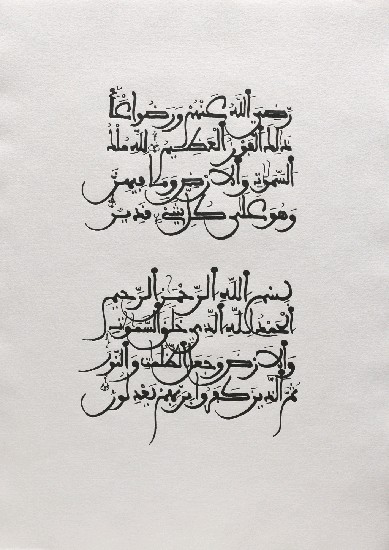 رضي الله عنهم ورضوا عنه
ذلك الفوز العظيم لله ملك
السموت والارض وما فيهن
وهو على كل شيء قدير
بسم الله الرحمن الرحيم
الحمد لله الذي خلق السموت
والارض وجعل الظلمت والنور
ثم الذين كفروا بربهم يعدلون